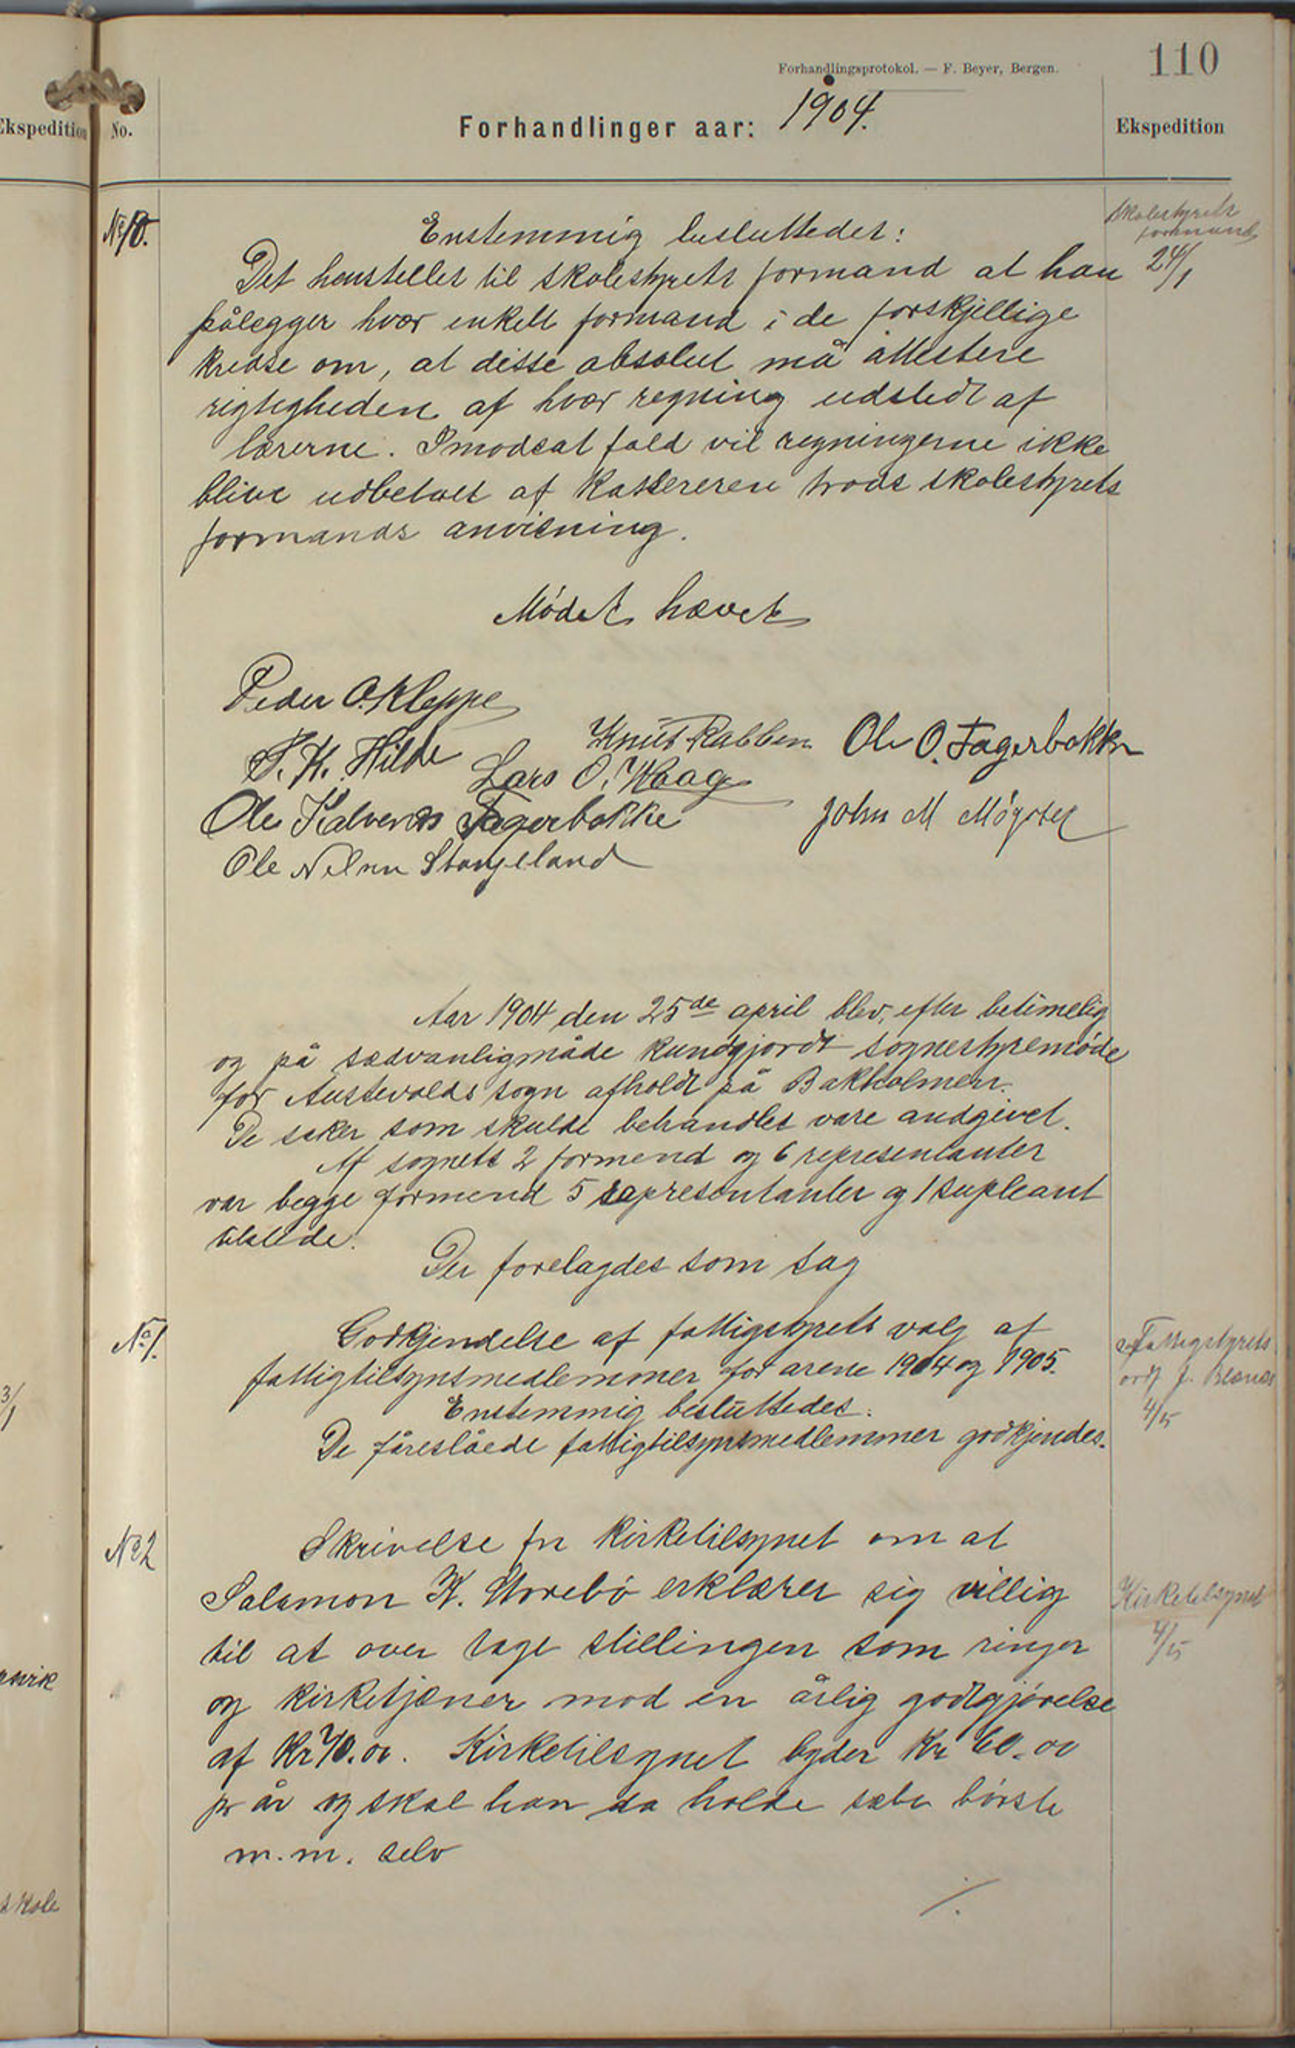 110
Forhandlingsprotokol. — F. Beyer, Bergen.
Ekspedition
No.
Forhandlinger aar: 1904.
Ekspedition
No 10.
Enstemmig besluttedes:
Det henstilles til skolestyrets formand at han
pålegger hvor enkelt formand i de forskjellige
kredse om, at disse absolut må attestere
rigtigheden af hvor regning udstedt af
lærerne. Imodsat fald vil regningerne ikke
blive udbetalt af Kassereren trods skolestyrets
formands anvisning.
skolestyrets
formand
24/1
Mødet hævet
Peder O. Kleppe
Knut Rabben
Ole O. Fagerbakke
P. K. Hilde
Lars O. Waag
Ole Halvorsen Fagerbakke
John M Møgster
Ole Nelsen Stangeland
Aar 1904 den 25de april blev, efter betimelig
og på sædvanligmåde kundgjordt sognestyremøde
for Austevolds sogn afholdt på Bakholmen.
De saker som skulde behandles vare andgivet.
Af sognets 2 formend og 6 representanter
var begge formend 5 representanter og 1 supleant
tilstede.
Der forelagdes som sag
No 1.
Godkjendelse af fattigstyrets valg af
fattigtilsynsmedlemmer for arene 1904 og 1905.
Enstemmig besluttedes:
De føreslåede fattigtilsynsmedlemmer godkjendes.
Fattigstyrets
ordf J. Blænes
4/5
3/1
No 2
Skrivelse fra Kirketilsynet om at
Salamon K. Storebø erklærer sig villig
til at over tage stillingen som ringer
og kirketjæner mod en årlig godtgjørelse
af Kr 70.00. Kirketilsynet byder Kr 60.00
pr år og skal han da holde sæbe børste
m.m. selv
Kirketilsynet
4/5
skole
./.